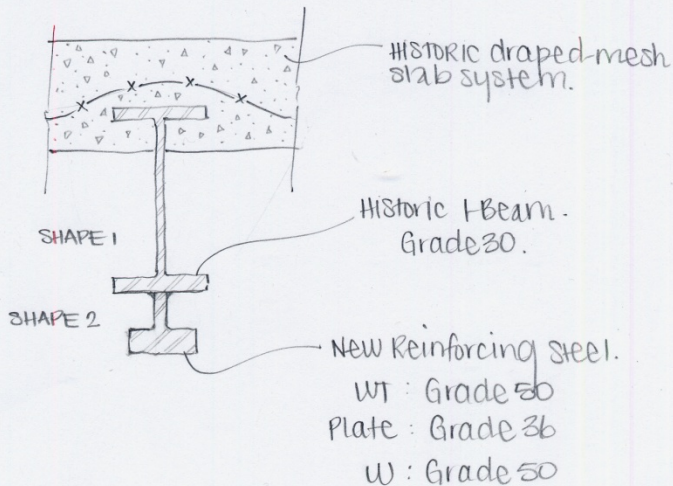 HISTORIC draped-mesh
slab system.
SHAPE 1
Historic I-Beam.
Grade 30.
SHAPE 2
New Reinforcing Steel.
WT : Grade 50
Plate : Grade 36
W : Grade 50